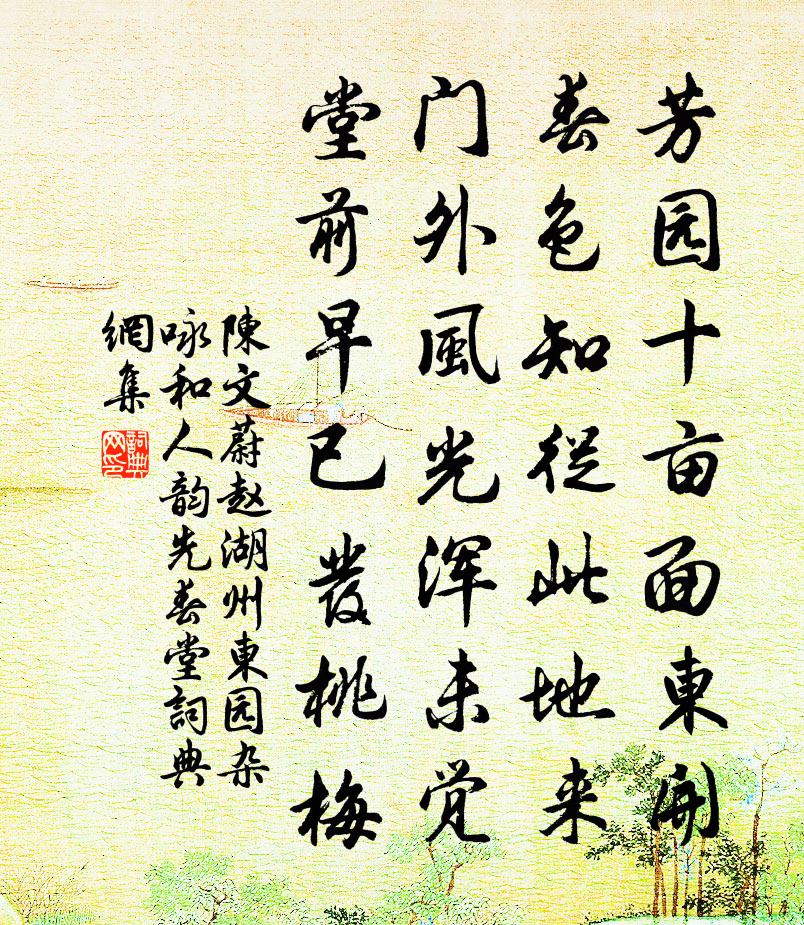 芳园十亩面東開
春色知從此地来
门外風光浑未觉
堂前早已發桃梅
陳文蔚赵湖州東园杂
咏和人韵先春堂詞典
網集
詞典
网印